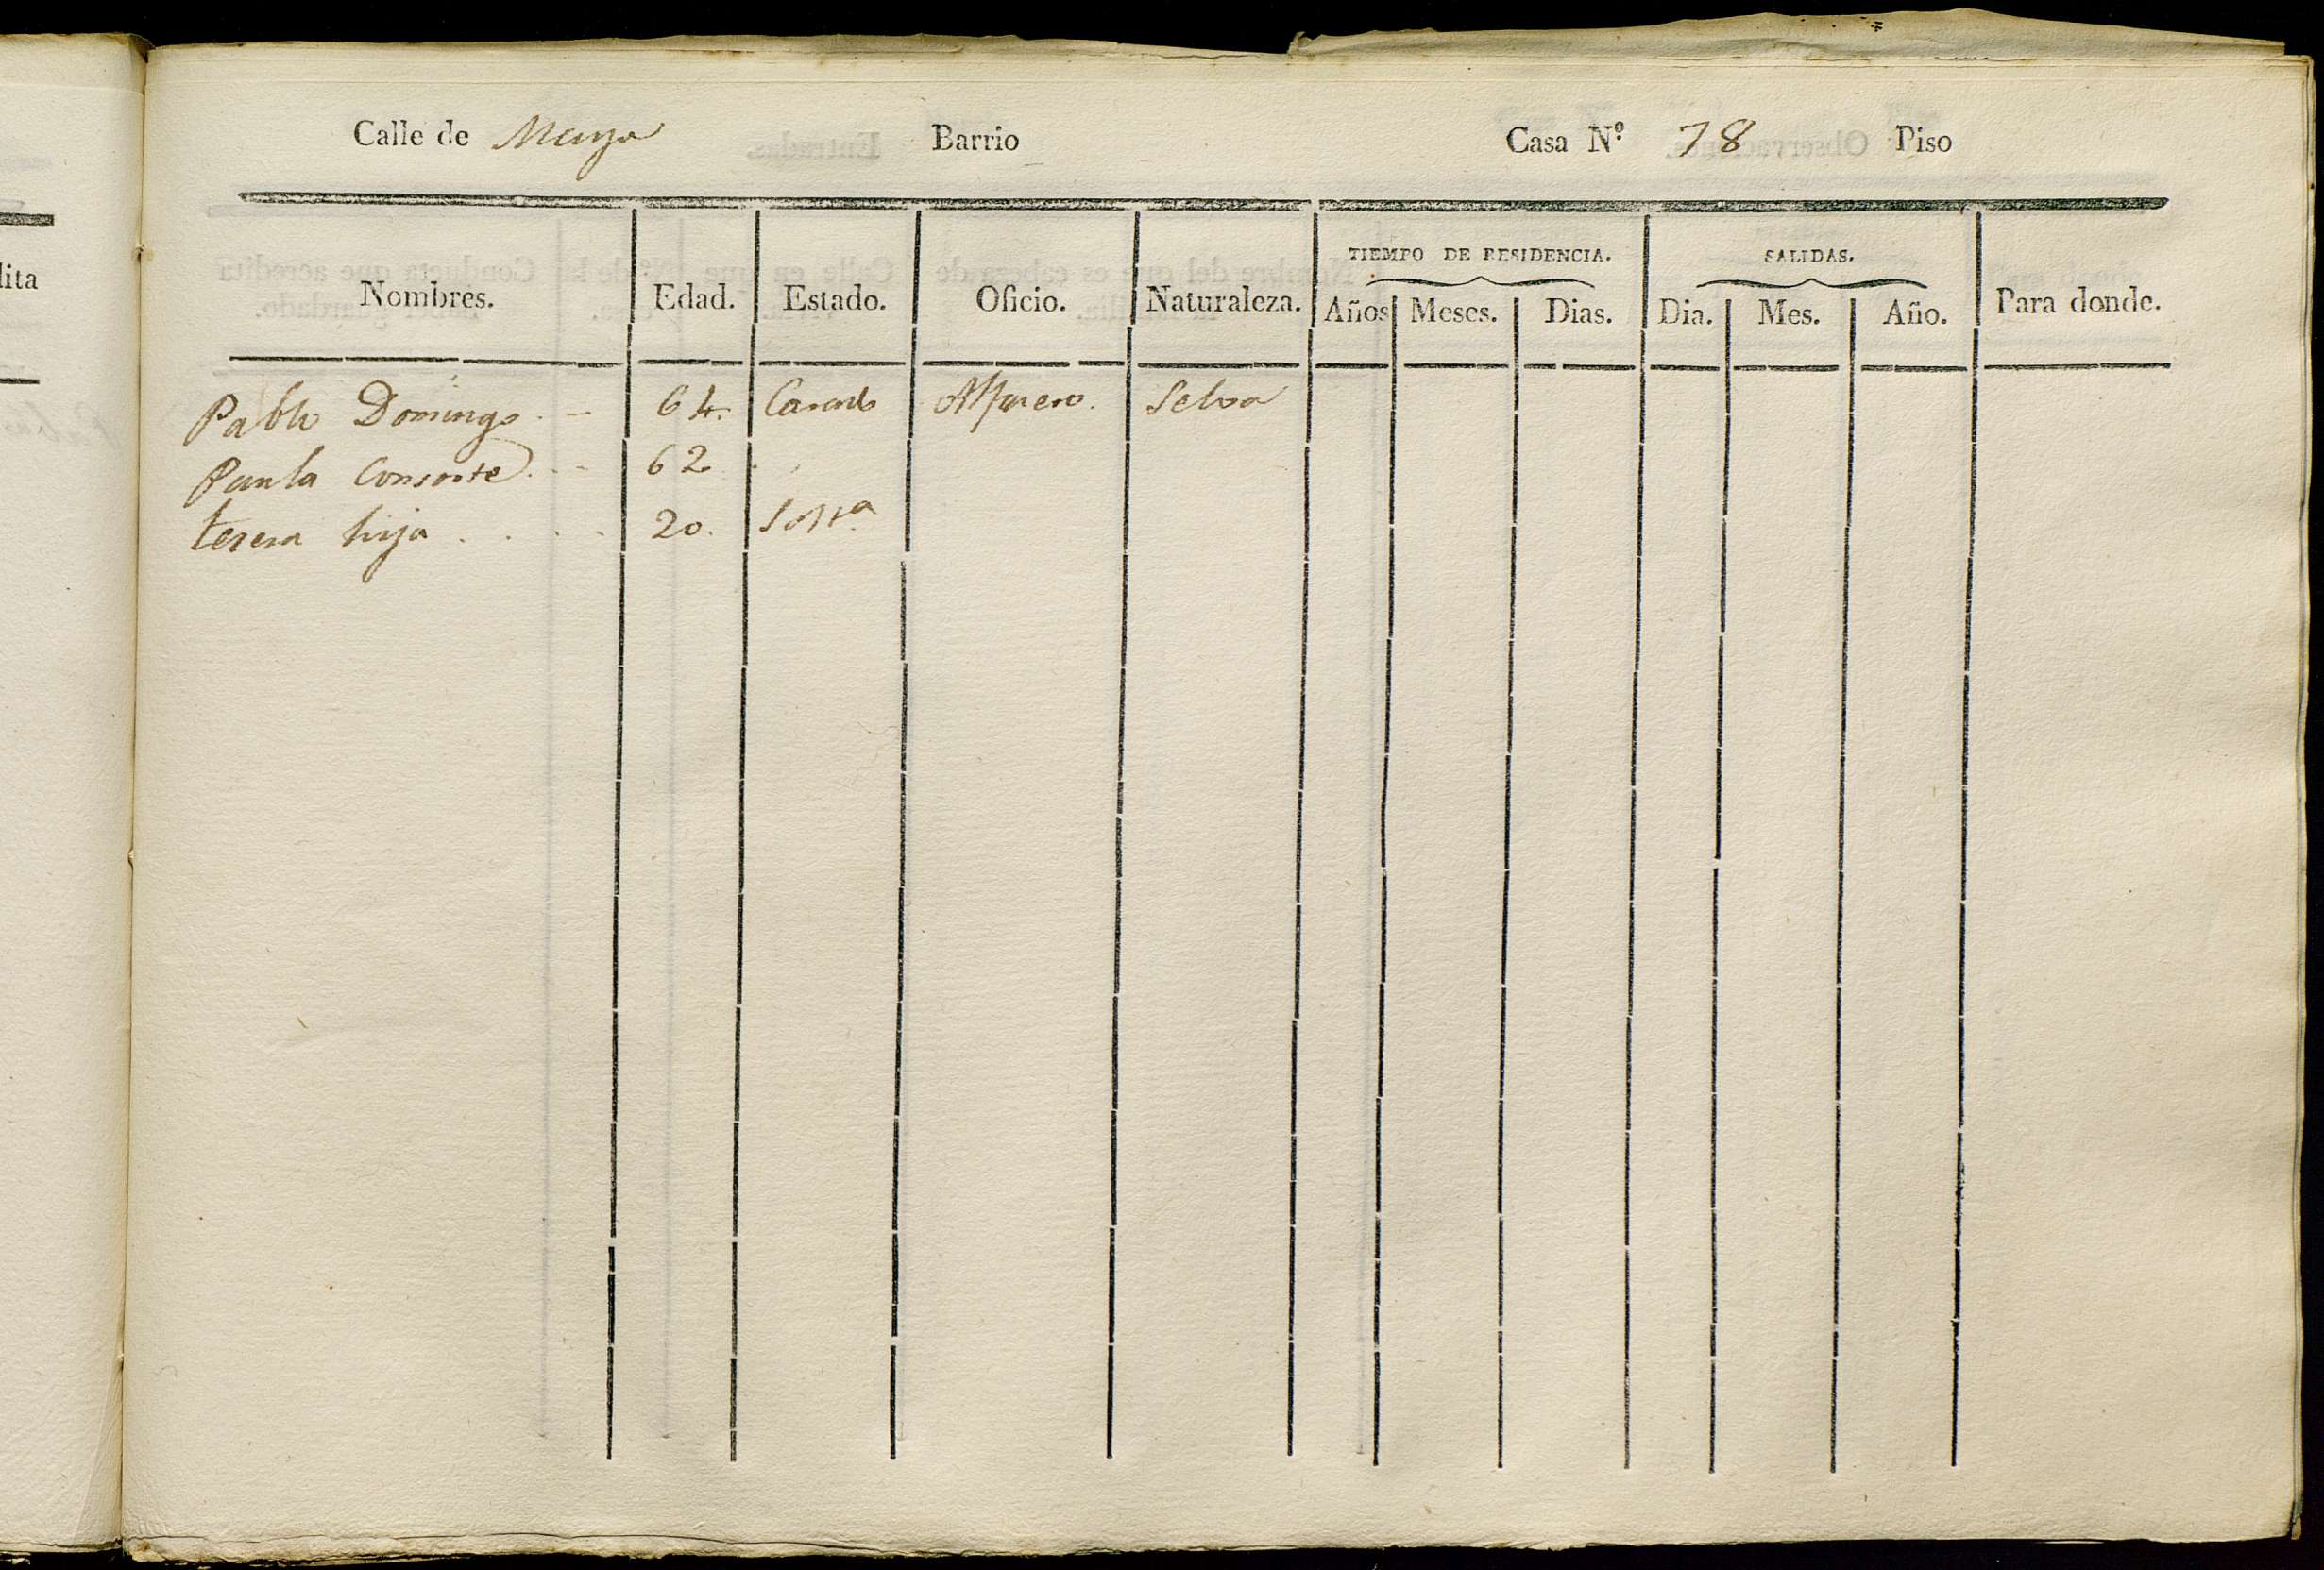 Calle de Mayor Barrio Casa N.º 78 Piso
TIEMPO DE RESIDENCIA. SALIDAS.
Nombres. Edad. Estado. Oficio. Naturaleza. Años Meses. Dias. Dia. Mes. Año. Para donde.
Pablo Domingo 64. Casado Alfarero. Selva
Paula Consorte 62
teresa hija 20. Solt.a
lita